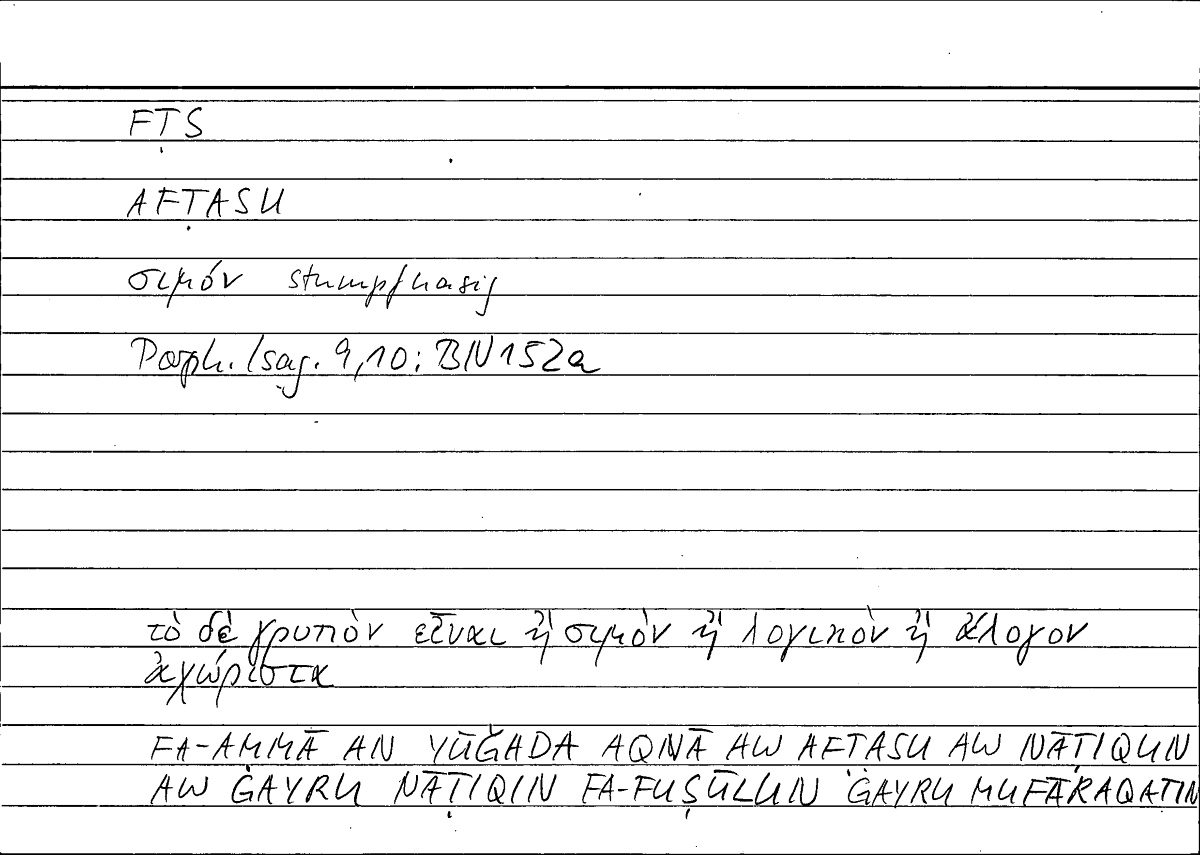 FṬS
AFṬASU
σιμόν stumpfnasig
Porph. Isag. 9,10; BN 152a
τὸ δὲ γρυπὸν εἶναι ἢ σιμὸν ἢ λογικὸν ἢ ἄλογον
ἀχώριστα
FA-AMMĀ AN YŪǦADA AQNĀ AW AFṬASU AW NĀṬIQUN
AW ĠAYRU NĀṬIQIN FA-FUṢŪLUN ĠAYRU MUFĀRAQATIN